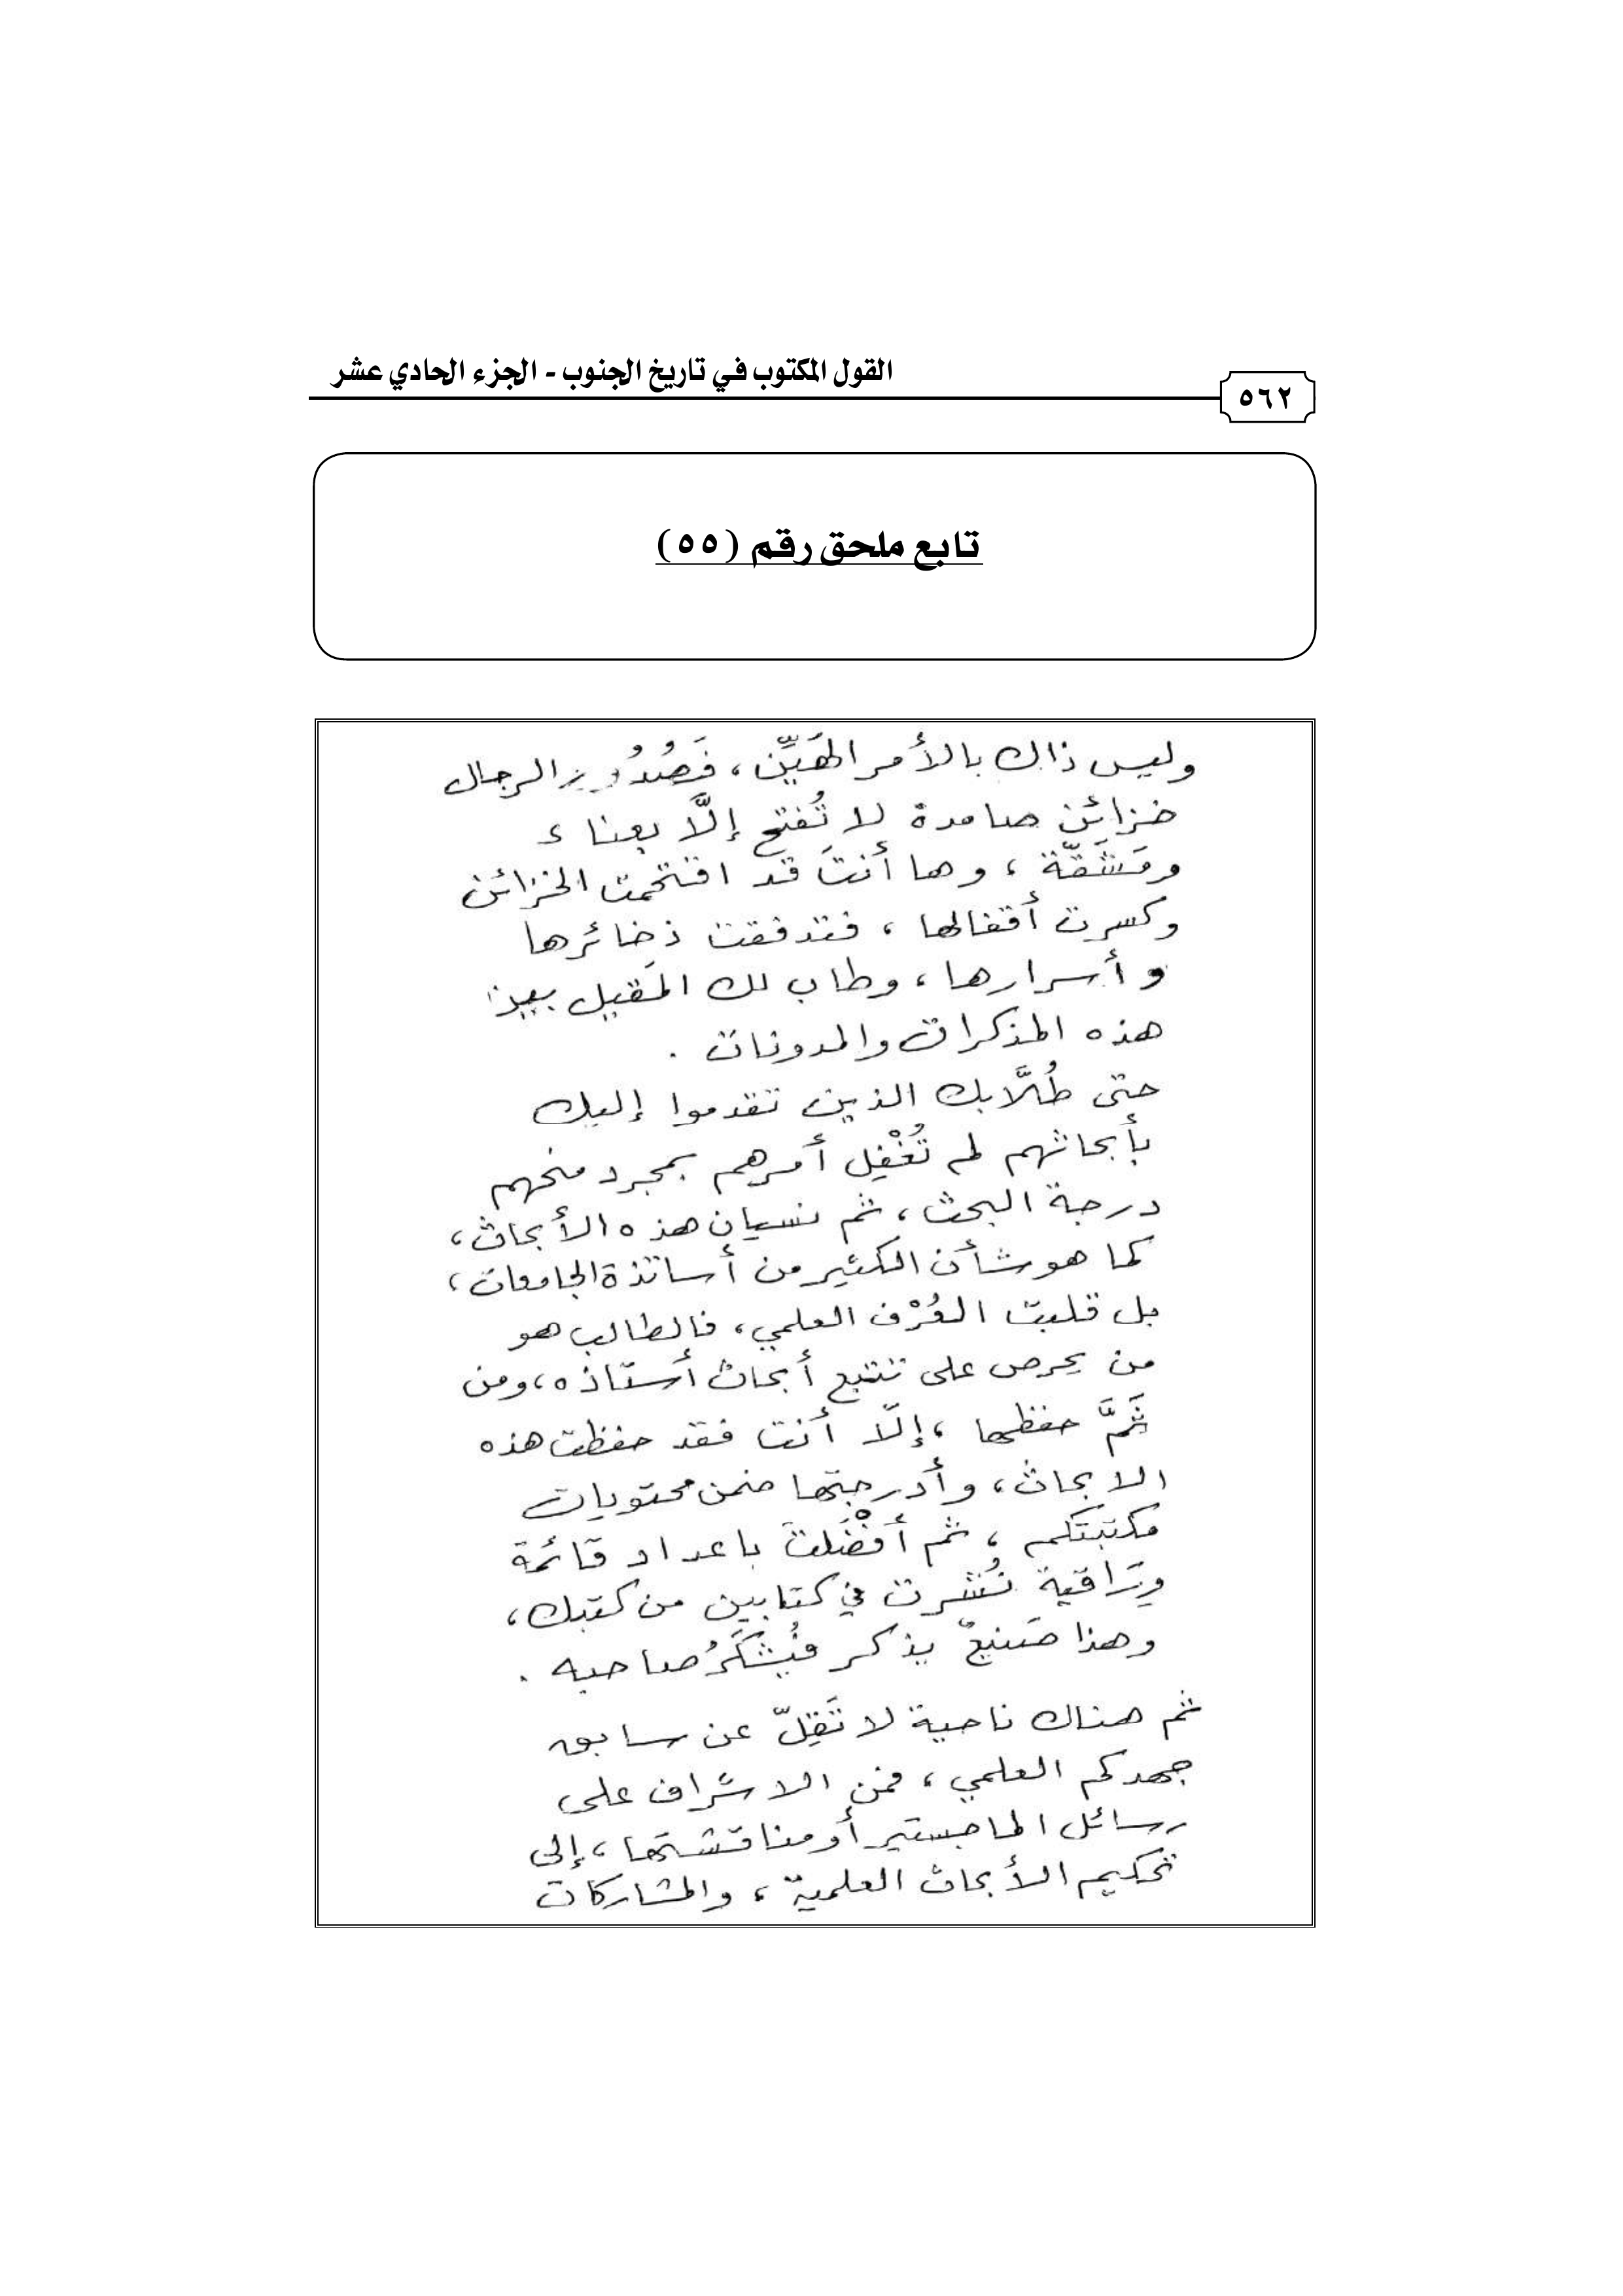 القول المكتوب في تاريخ الجنوب - الجزء الحادي عشر
٥٦٢
تابع ملحق رقم (٥٥)
وليس ذاك بالأمر الهَيِّن، فَصُدُور الرجال
خزائن صامدة لا تُفتح إلَّا بعناء
ومَشَقَّة، وها أنتَ قد اقتحمت الخزائن
وكسرت أقفالها، فتدفقت ذخائرها
وأسرارها، وطاب لك المَقيل بين
هذه المذكرات والمدونات.
حتى طُلَّابك الذين تقدموا إليك
بأبحاثهم لم تُغْفِل أمرهم بمجرد منحهم
درجة البحث، ثم نسيان هذه الأبحاث،
كما هو شأن الكثير من أساتذة الجامعات،
بل قلبت العُرْف العلمي، فالطالب هو
من يحرص على تتبع أبحاث أستاذه، ومن
ثَمَّ حفظها، إلّا أنت فقد حفظت هذه
الابحاث، وأدرجتها ضمن محتويات
مكتبتكم، ثم أفْضَلتَ باعداد قائمة
ورّاقية نُشرت في كتابين من كتبك،
وهذا صَنيعٌ يذكر فيُشكَرُ صاحبه.
ثم هناك ناحية لا تَقِلّ عن سابق
جهدكم العلمي، فمن الاشراف على
رسائل الماجستير أو مناقشتها، إلى
تحكيم الأبحاث العلمية، والمشاركات